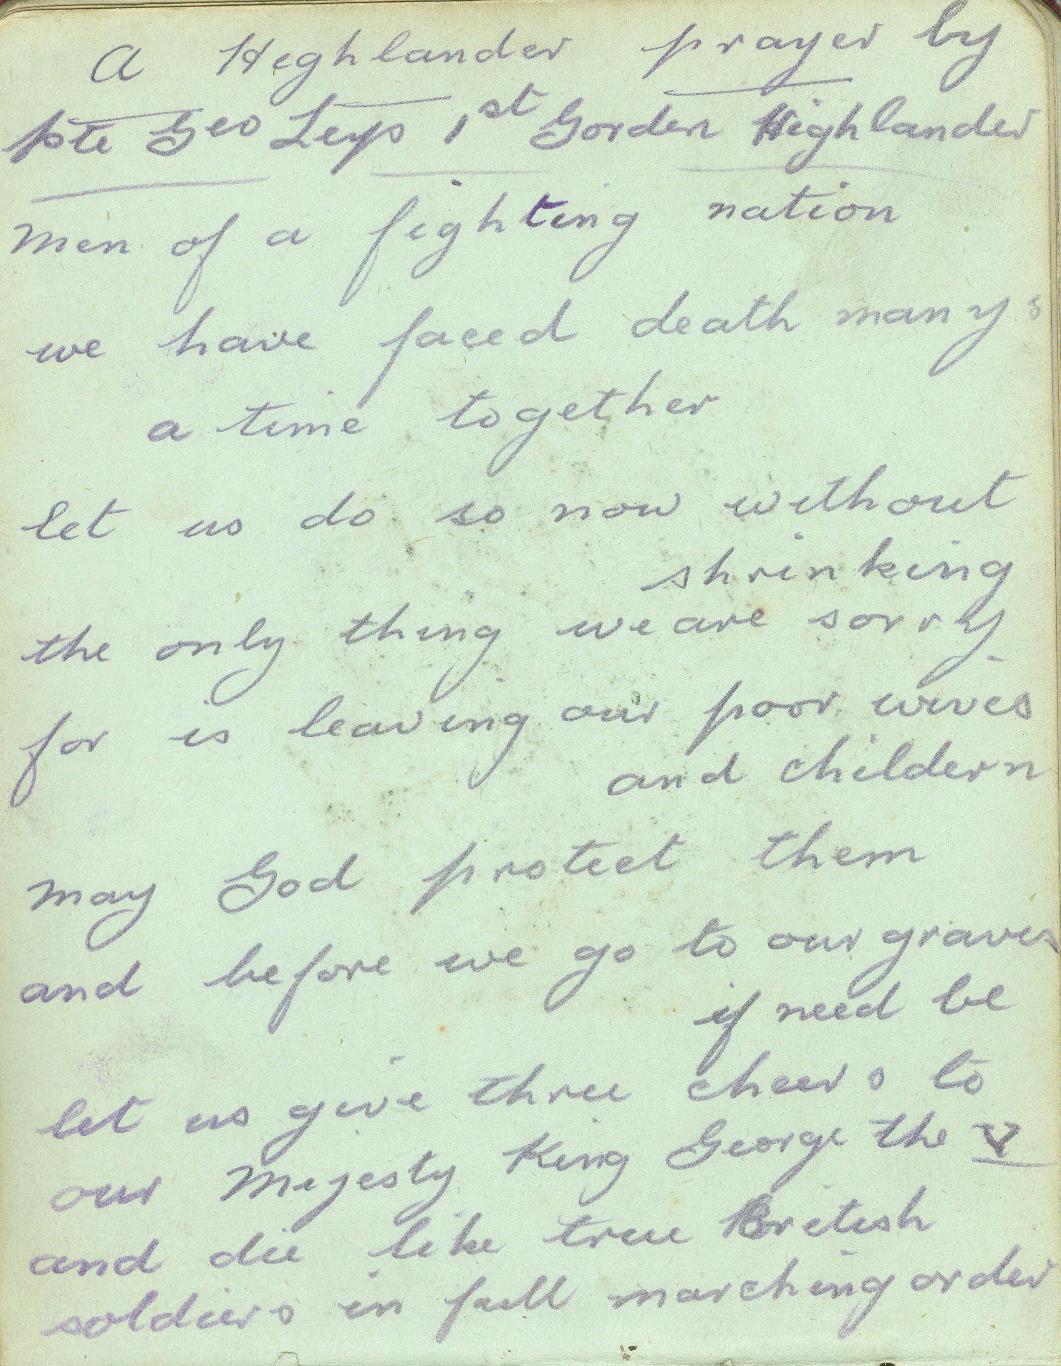 A Highlander prayer by
pte Geo Leys 1st Gorden Highlander
Men of a fighting nation
we have faced death manys
a time together
let us do so now without
shrinking
the only thing we are sorry
for is leaving our poor wives
and childern
may God protect them
and before we go to our graves
if need be
let us give three cheers to
our Mejesty King George the V
and die like true British
soldiers in full marching order